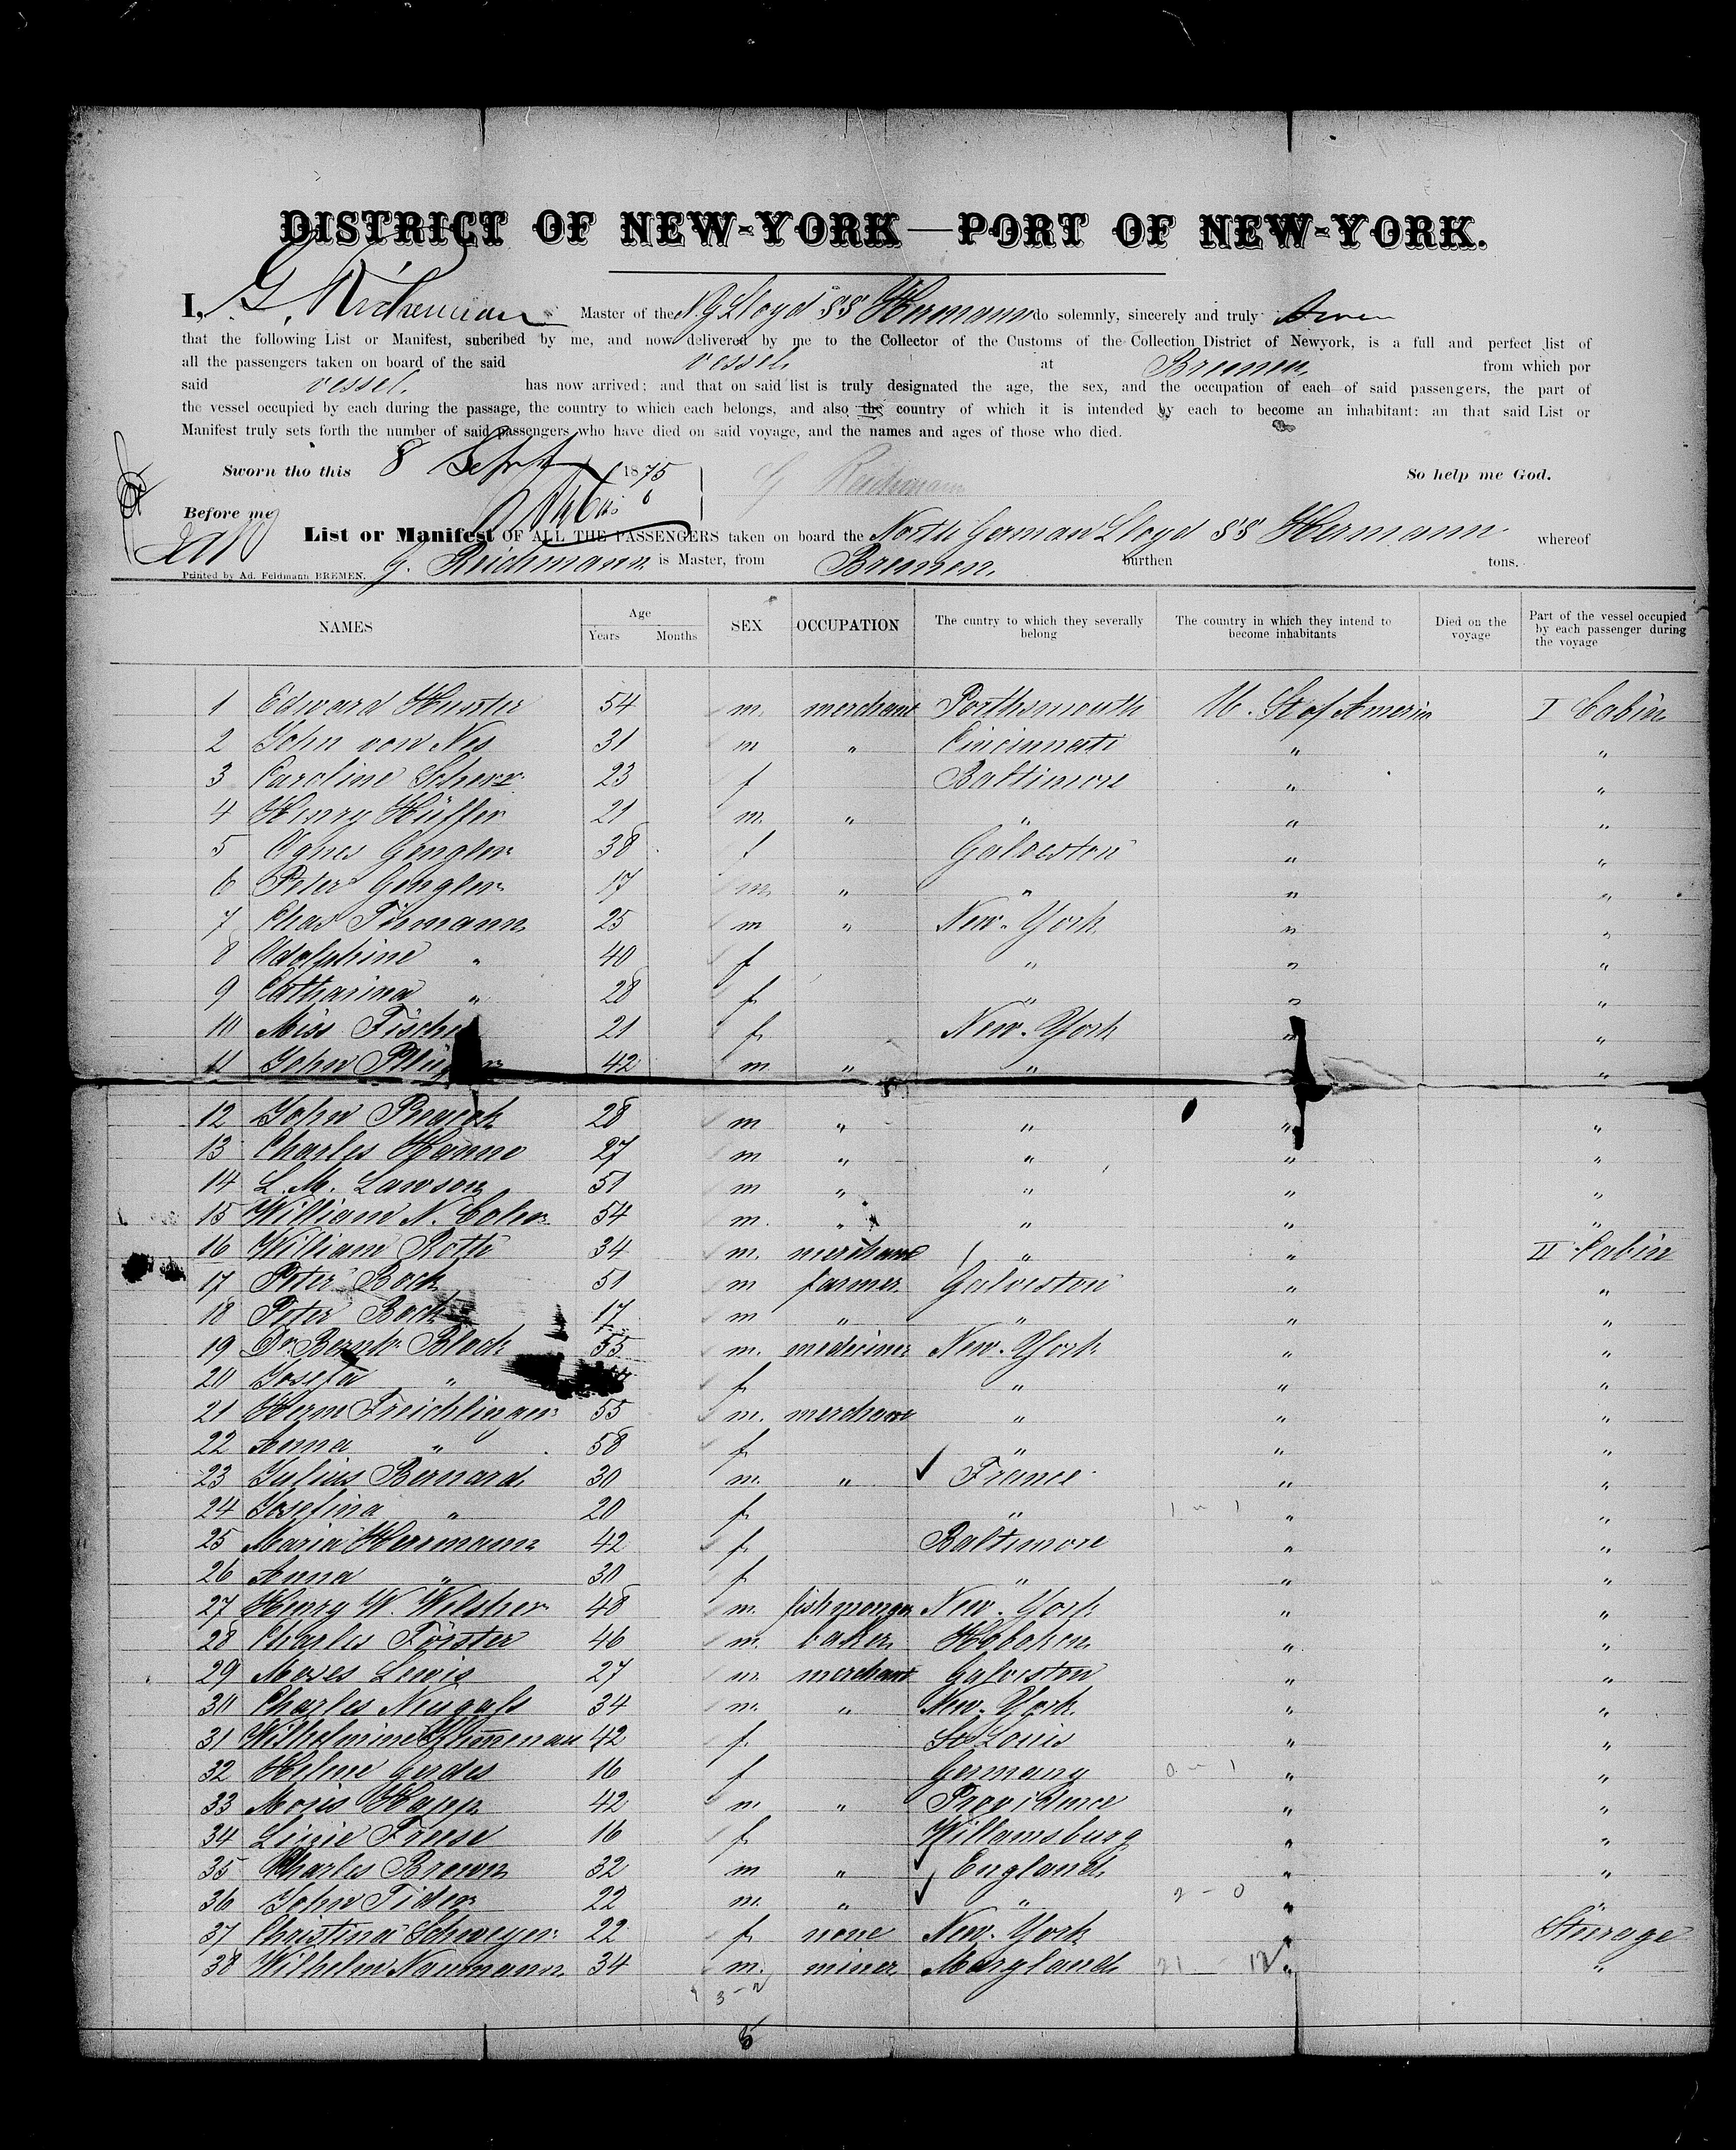 DISTRICT OF NEW-YORK—PORT OF NEW-YORK.
I, G. Reichmann Master of the N. G. Lloyd SS Hermann do solemnly, sincerely and truly swear
that the following List or Manifest, subcribed by me, and now delivered by me to the Collector of the Customs of the Collection District of Newyork, is a full and perfect list of
all the passengers taken on board of the said vessel. at Bremen, from which por
said vessel. has now arrived; and that on said list is truly designated the age, the sex, and the occupation of each of said passengers, the part of
the vessel occupied by each during the passage, the country to which each belongs, and also the country of which it is intended by each to become an inhabitant: an that said List or
Manifest truly sets forth the number of said passengers who have died on said voyage, and the names and ages of those who died.
Sworn tho this 8 Sept 1875 G Reichmann So help me God.
Before me
List or Manifest OF ALL THE PASSENGERS taken on board the North German Lloyd SS Hermann whereof
G. Reichmann is Master, from Bremen. burthen tons.
Printed by Ad. Feldmann BREMEN.
NAMES Age Years Months SEX OCCUPATION The cuntry to which they severally belong The country in which they intend to become inhabitants Died on the voyage Part of the vessel occupied by each passenger during the voyage
1 Edward Hunter 54 m. merchant Porthsmouth U. St of Americ I Cabin
2 John von Nes 31 m " Cincinnati " "
3 Caroline Scherr 23 f Baltimore " "
4 Henry Hüffer 21 m. " " " "
5 Agnes Gengler 38 f Galveston " "
6 Peter Gengler 17 m " " " "
7 Chas Tiemann 25 m " New-York " "
8 Adolphine " 40 f " " "
9 Catharina " 28 f " " "
10 Miss Fische 21 f New-York " "
11 John 42 m " " " "
12 John 28 m " " " "
13 Charles Hanno 27 m " " " "
14 L. M. Lawson 51 m " " " "
15 William N. Coler 54 m. " " " "
16 William Rothe 34 m. merchant " " II Cabin
17 Peter Bock 51 m farmer Galveston " "
18 Peter Bock 17 m " " " "
19 Dr. Bernh. Block 55 m. mediciner New-York " "
20 Josefa " f " " "
21 Herm Freichlinger 55 m. merchant " " "
22 Anna " 58 f " " "
23 Julius Bernard 30 m. " France " "
24 Josefina " 20 f " " "
25 Maria Herrmann 42 f Baltimore " "
26 Anna " 30 f " " "
27 Henry W. Welsher 48 m. fishmonger New-York " "
28 Charles Förster 46 m. baker Hoboken " "
29 Moses Lewis 27 m. merchant Galveston " "
30 Charles Neugass 34 m. " New-York " "
31 Wilhelmine 42 f St Louis " "
32 Helene Gerdes 16 f Germany " "
33 Mojis Happ 42 m. " Providence " "
34 Linie Freese 16 f Willamsburg " "
35 Charles Brown 32 m " England " "
36 John Tider 22 m. " " 2 - 0 " "
37 Christina Schweyer 22 f none New-York " Steerage
38 Wilhelm Naumann 34 m. miner Maryland 21 - 12 " "
3 - 2
5